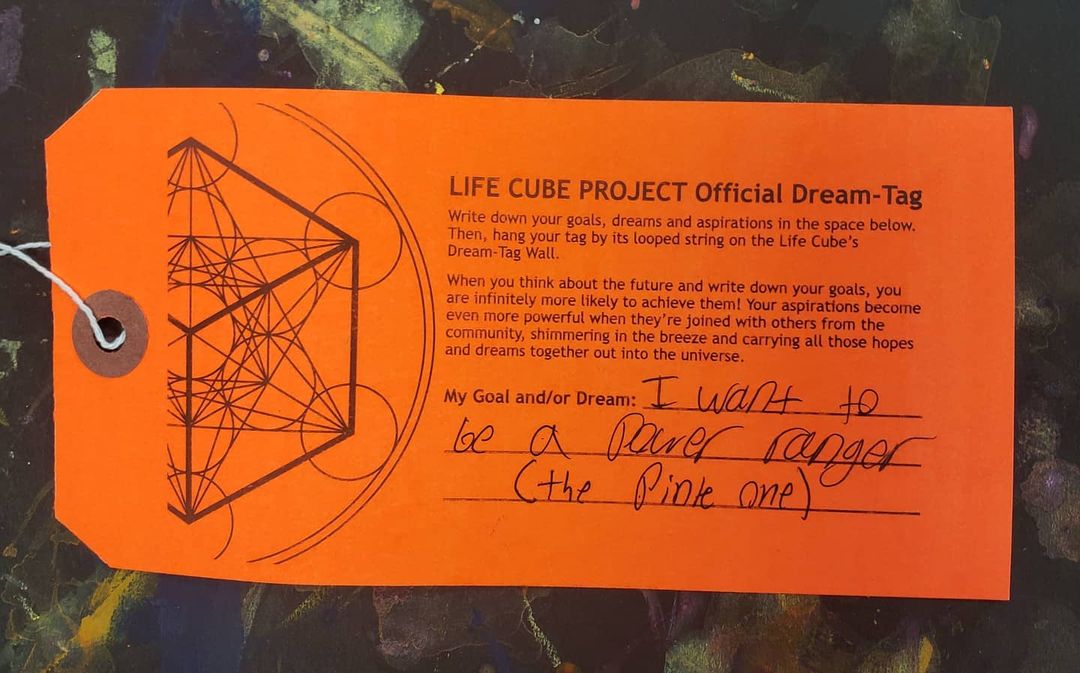 LIFE CUBE PROJECT Official Dream-Tag
Write down your goals, dreams and aspirations in the space below.
Then, hang your tag by its looped string on the Life Cube's
Dream-Tag Wall.
When you think about the future and write down your goals, you
are infinitely more likely to achieve them! Your aspirations become
even more powerful when they're joined with others from the
community, shimmering in the breeze and carrying all those hopes
and dreams together out into the universe.
My Goal and/or Dream: I want to
be a Power ranger
(the Pink one)